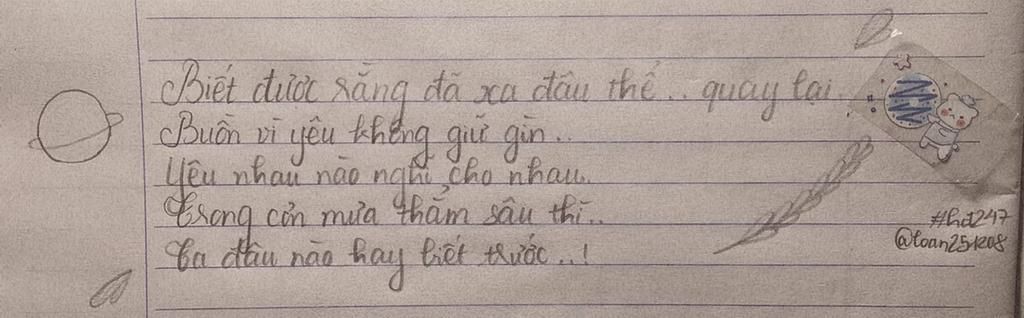 Biết được rằng đã xa đâu thể.. quay lại.
Buồn vì yêu không giữ gìn..
Yêu nhau nào nghĩ cho nhau.
Trong cơn mưa thẳm sâu thì..
Ta đâu nào hay biết trước..!
#hd247
@toan251208